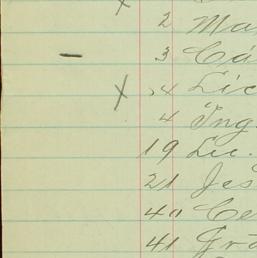 x
2 Ma
– 3 Cá
x 4 Lic
4 Ing.
19 Lic.
21 Jes
40 Ce
41 Gra